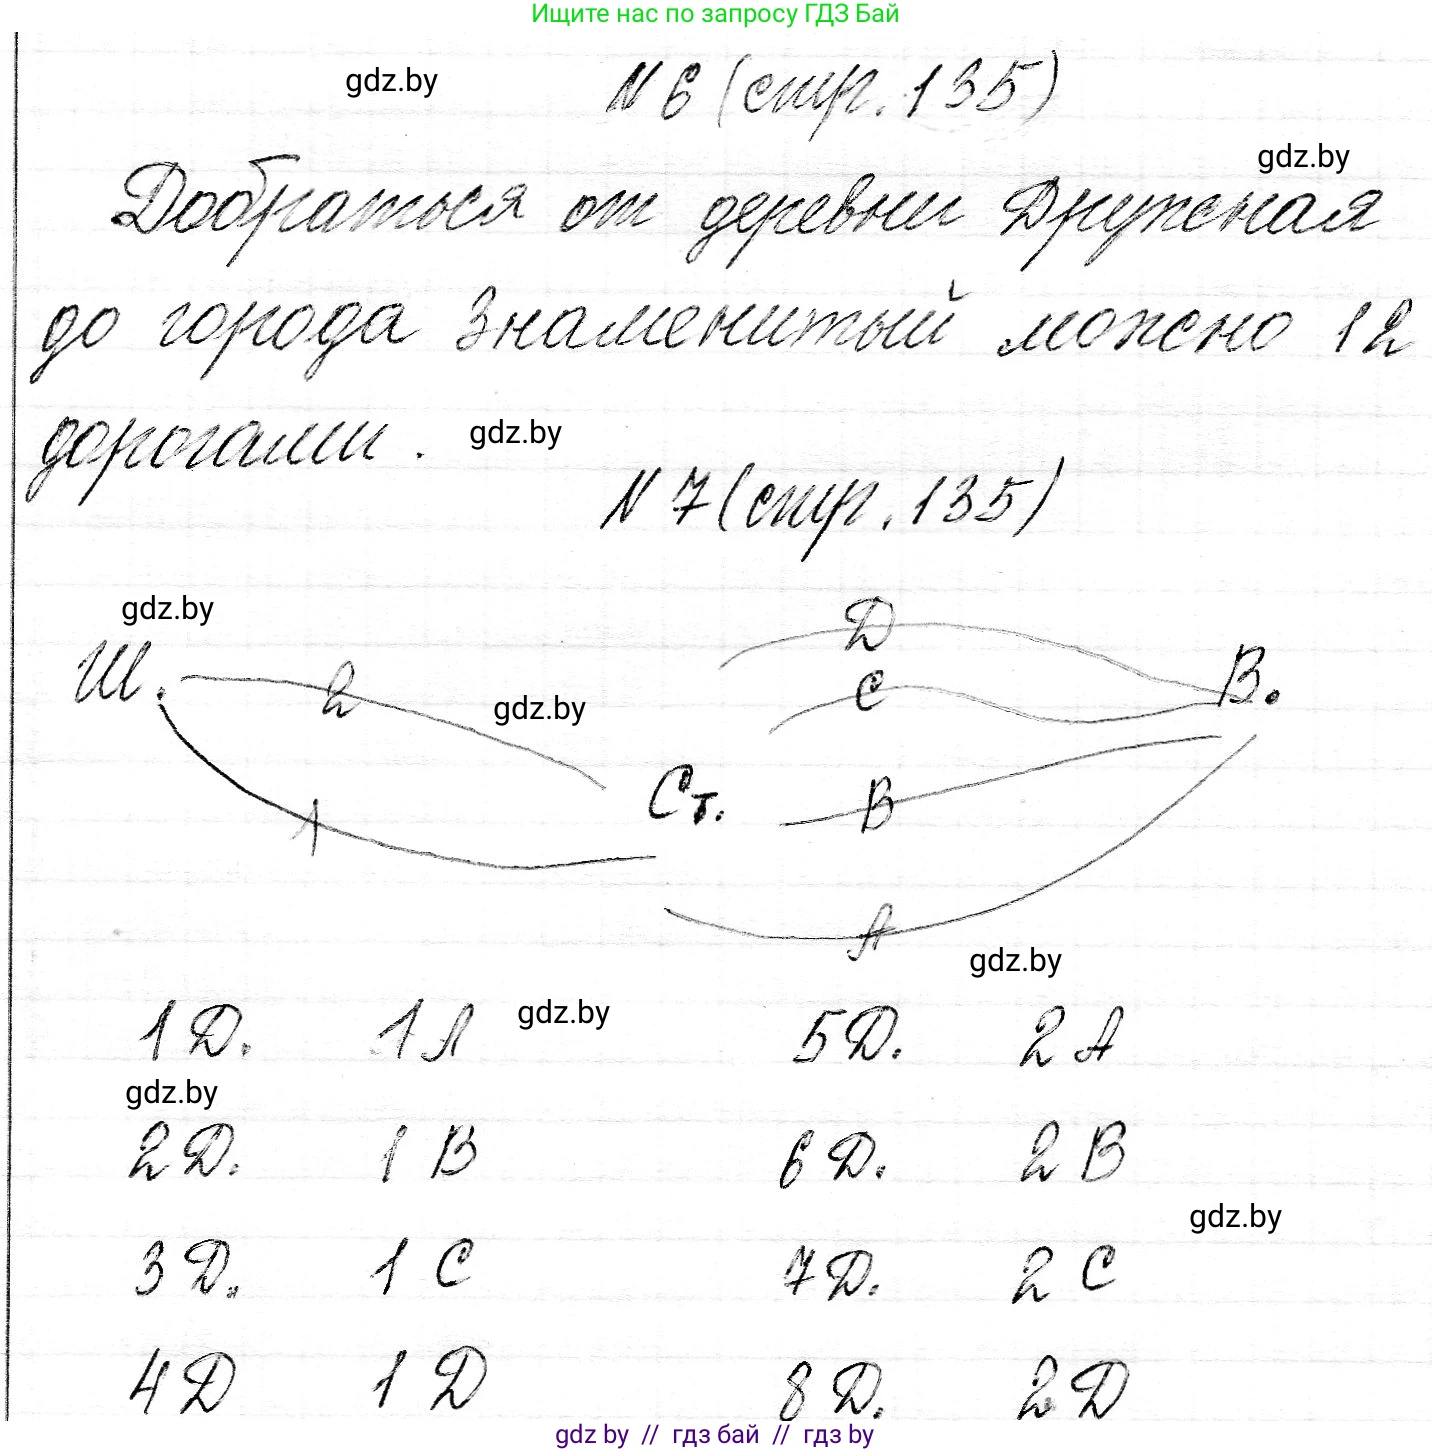 Ищите нас по запросу ГДЗ Бай
gdz.by
№ 6 (стр. 135)
gdz.by
Добраться от деревни Дружная
до города Знаменитый можно 12
дорогами.
gdz.by
№ 7 (стр. 135)
gdz.by
Д
Ш.
2
gdz.by
С
В.
Ст.
1
В
А
gdz.by
1Д. 1А gdz.by 5Д. 2А
gdz.by
2Д. 1В 6Д. 2В
gdz.by
3Д. 1С 7Д. 2С
4Д 1Д 8Д. 2Д
gdz.by // гдз бай // гдз by